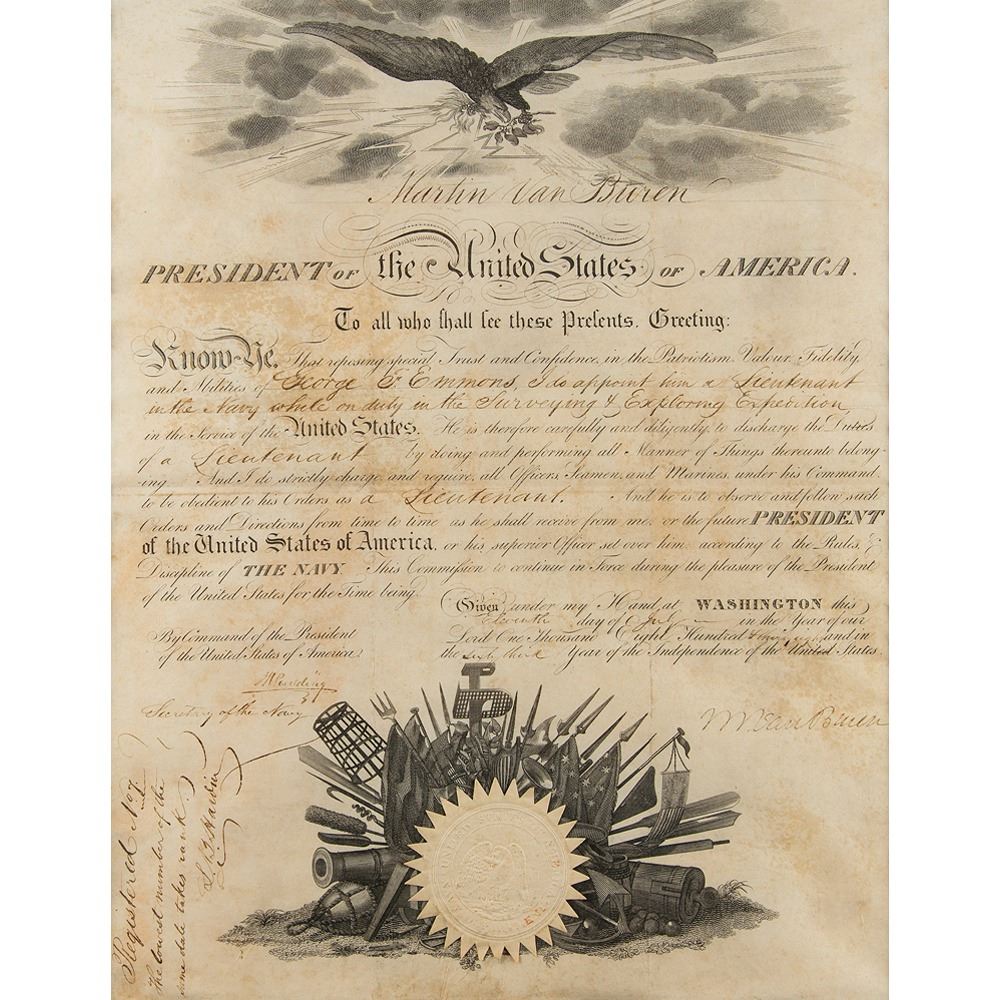 Martin Van Buren
PRESIDENT OF the United States OF AMERICA.
To all who shall see these Presents, Greeting:
Know Ye, That reposing special Trust and Confidence, in the Patriotism, Valour, Fidelity,
and Abilities of George F. Emmons, I do appoint him a Lieutenant
in the Navy while on duty in the Surveying & Exploring Expedition
in the Service of the United States. He is therefore carefully and diligently to discharge the Duties
of a Lieutenant by doing and performing all Manner of Things thereunto belong-
ing. And I do strictly charge, and require, all Officers, Seamen, and Marines, under his Command
to be obedient to his Orders as a Lieutenant. And he is to observe and follow such
Orders and Directions from time to time as he shall receive from me, or the future PRESIDENT
of the United States of America, or his superior Officer set over him, according to the Rules, &
Discipline of THE NAVY This Commission to continue in Force during the pleasure of the President
of the United States for the Time being.
Given under my Hand, at WASHINGTON this
Eleventh day of July in the Year of our
Lord One Thousand Eight Hundred and in
the Sixty third Year of the Independence of the United States.
By Command of the President
of the United States of America
JK Paulding
Secretary of the Navy
M Van Buren
Registered No 7.
The lowest number of the
same date takes rank.